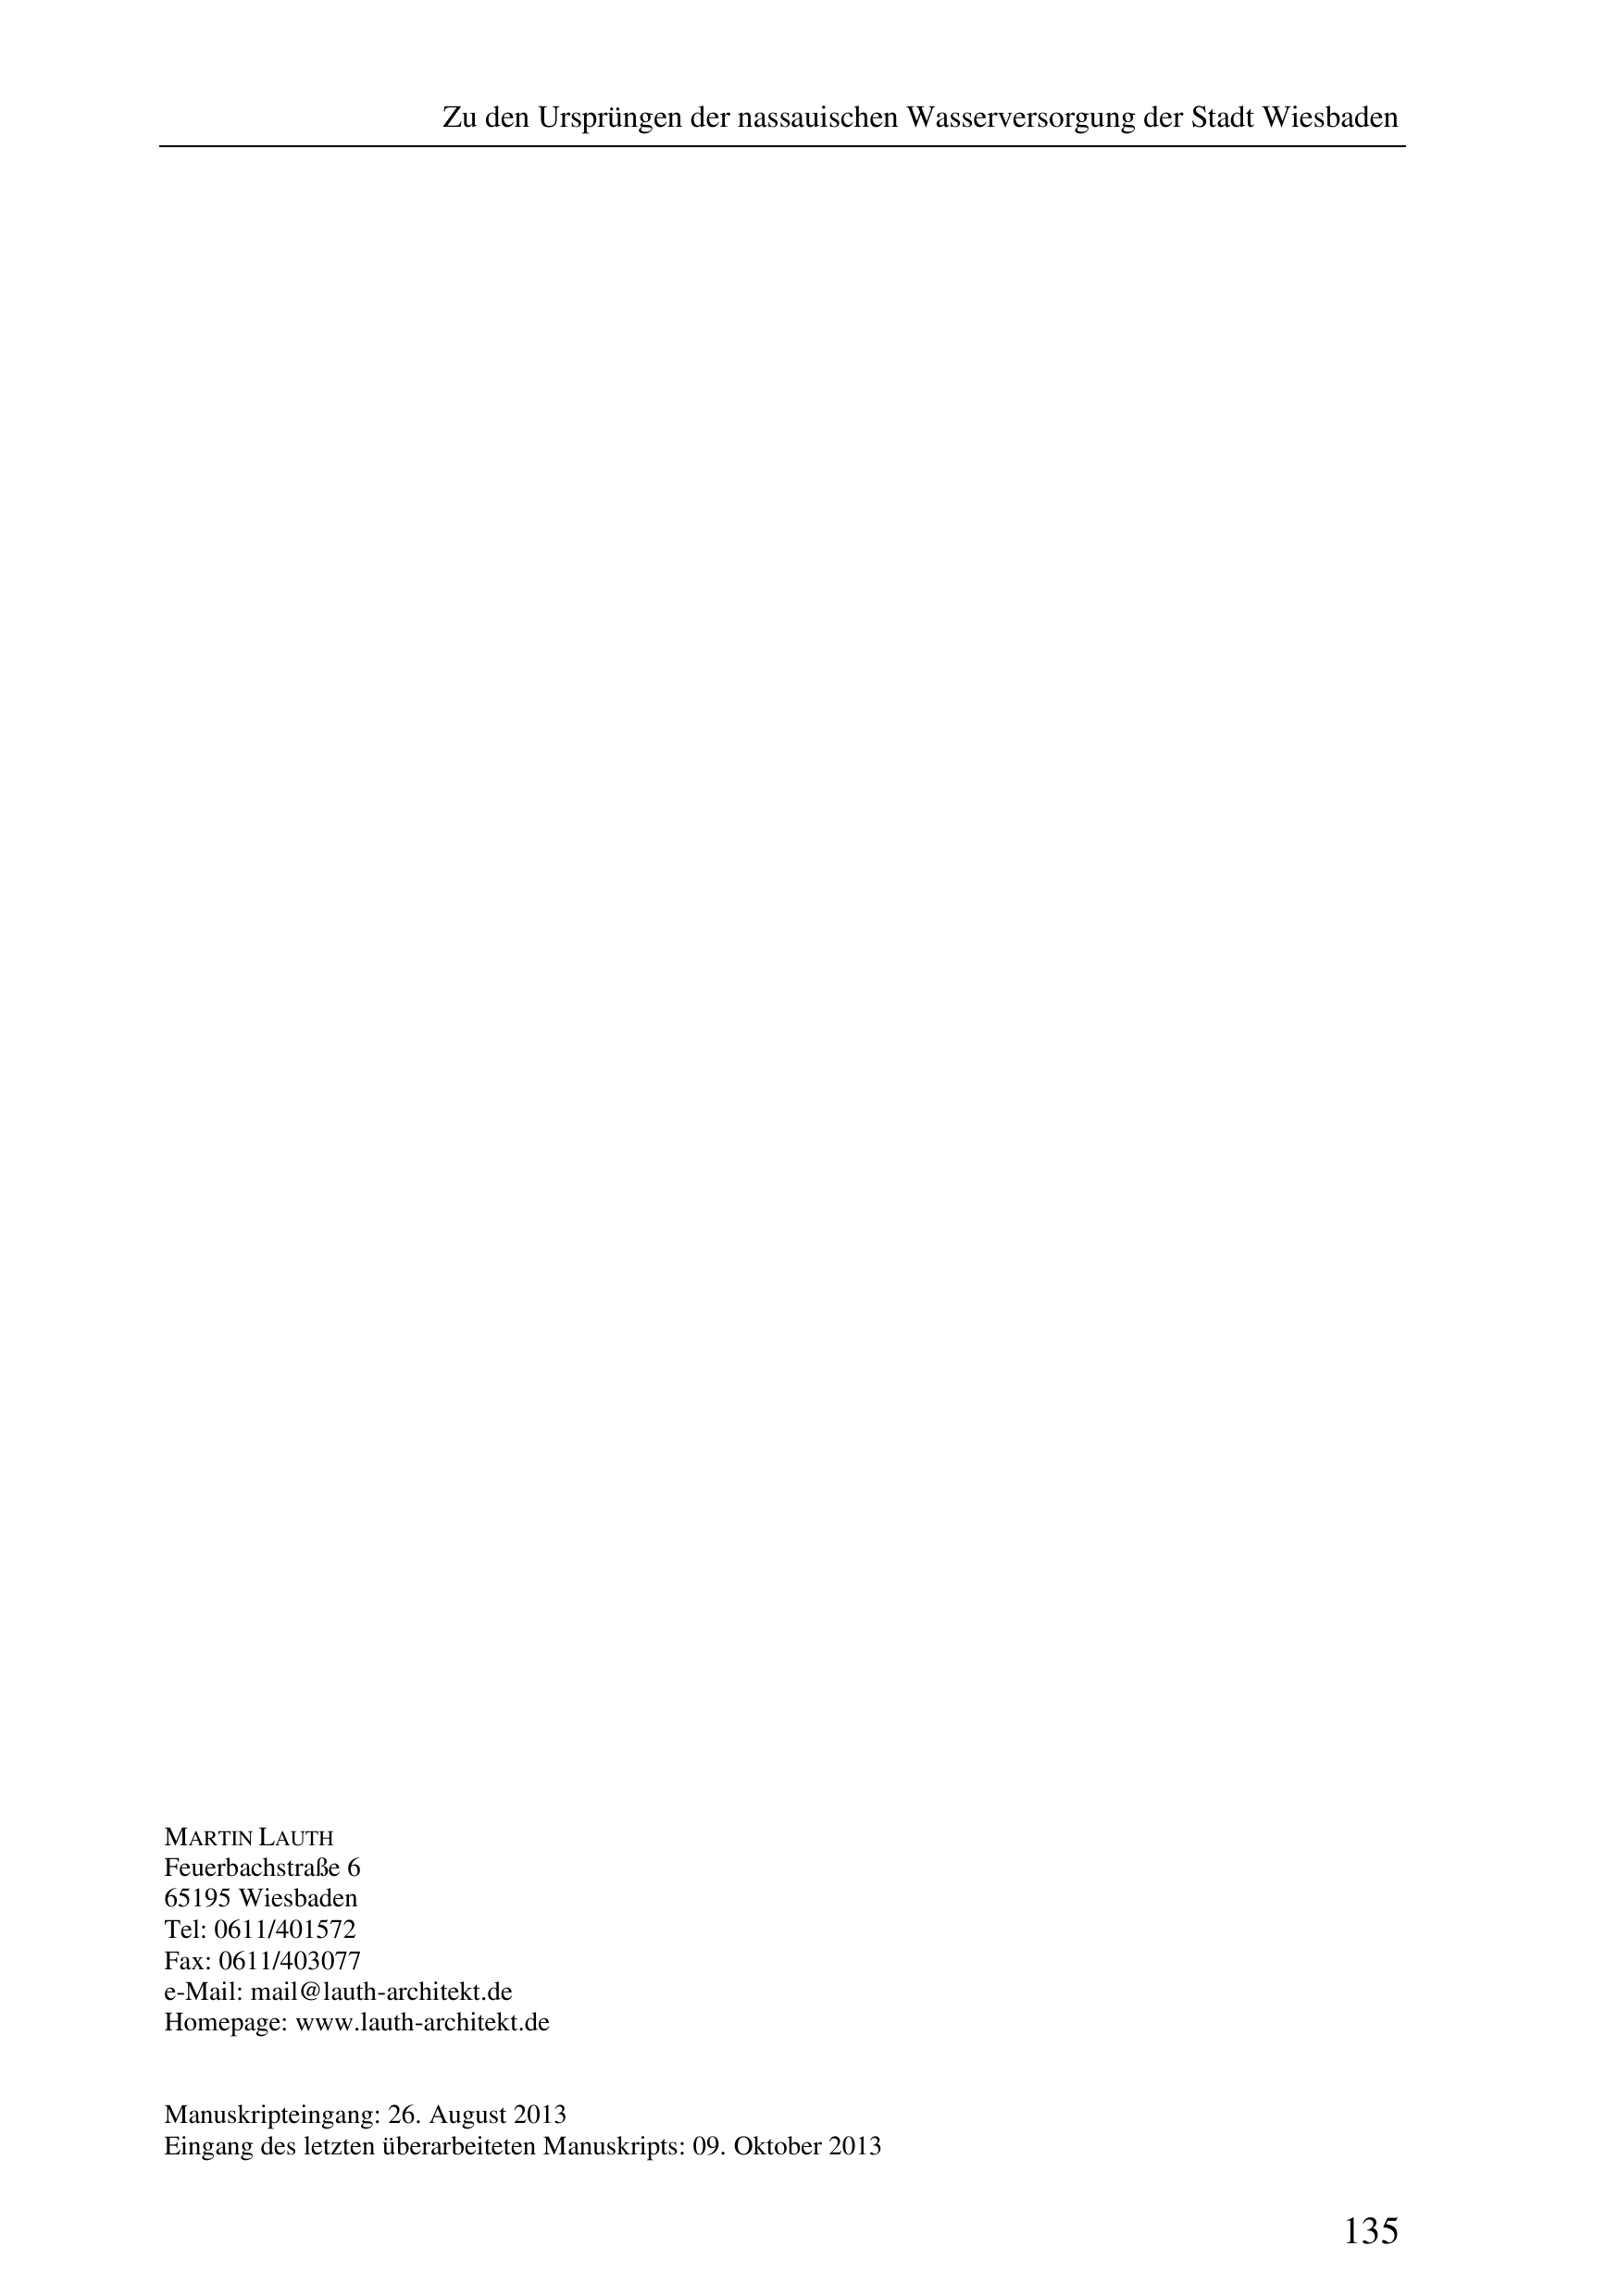 Zu den Ursprüngen der nassauischen Wasserversorgung der Stadt Wiesbaden
MARTIN LAUTH
Feuerbachstraße 6
65195 Wiesbaden
Tel: 0611/401572
Fax: 0611/403077
e-Mail: mail@lauth-architekt.de
Homepage: www.lauth-architekt.de
Manuskripteingang: 26. August 2013
Eingang des letzten überarbeiteten Manuskripts: 09. Oktober 2013
135